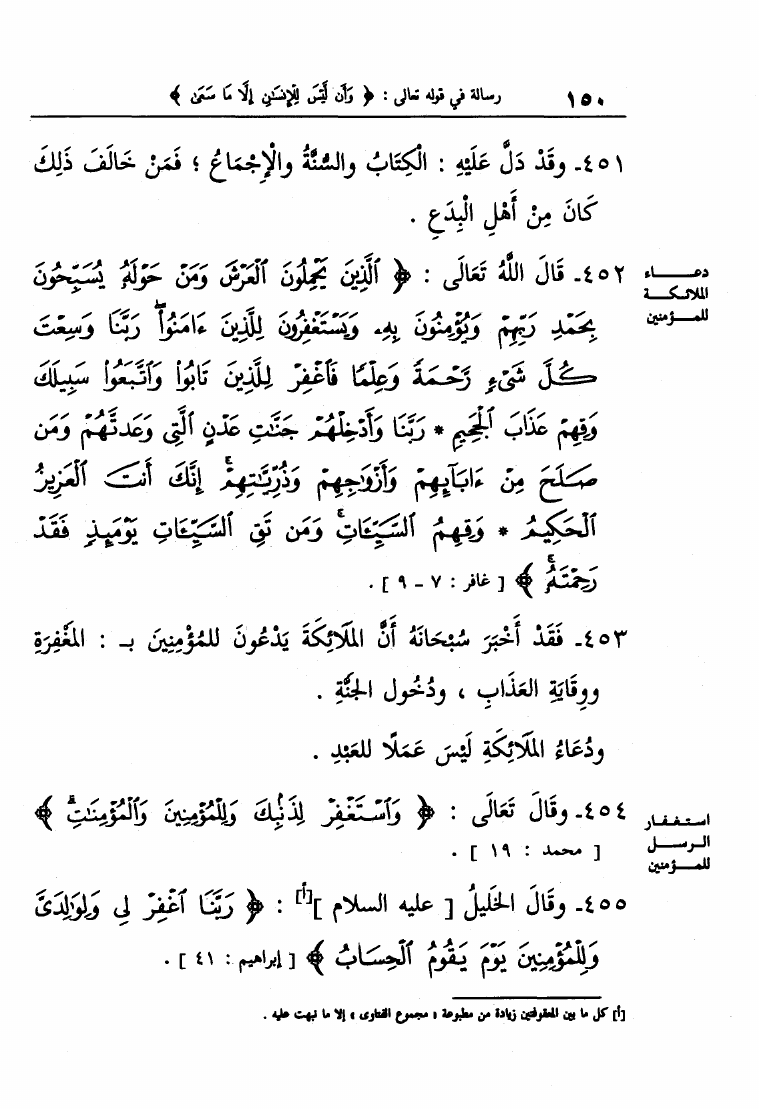 ١٥٠ رسالة في قوله تعالى : ﴿ وَأَن لَّيْسَ لِلْإِنسَٰنِ إِلَّا مَا سَعَىٰ ﴾
٤٥١ـ وقَدْ دَلَّ عَلَيْهِ : الْكِتَابُ والسُّنَّةُ والْإِجْمَاعُ ؛ فَمَنْ خَالَفَ ذَلِكَ
كَانَ مِنْ أَهْلِ الْبِدَعِ .
دعـــاء
الملائكـة
للمـؤمنين
٤٥٢ـ قَالَ اللَّهُ تَعَالَى : ﴿ ٱلَّذِينَ يَحْمِلُونَ ٱلْعَرْشَ وَمَنْ حَوْلَهُۥ يُسَبِّحُونَ
بِحَمْدِ رَبِّهِمْ وَيُؤْمِنُونَ بِهِۦ وَيَسْتَغْفِرُونَ لِلَّذِينَ ءَامَنُوا۟ۖ رَبَّنَا وَسِعْتَ
كُلَّ شَىْءٍ رَّحْمَةً وَعِلْمًا فَٱغْفِرْ لِلَّذِينَ تَابُوا۟ وَٱتَّبَعُوا۟ سَبِيلَكَ
وَقِهِمْ عَذَابَ ٱلْجَحِيمِ * رَبَّنَا وَأَدْخِلْهُمْ جَنَّٰتِ عَدْنٍ ٱلَّتِى وَعَدتَّهُمْ وَمَن
صَلَحَ مِنْ ءَابَآئِهِمْ وَأَزْوَٰجِهِمْ وَذُرِّيَّٰتِهِمْۚ إِنَّكَ أَنتَ ٱلْعَزِيزُ
ٱلْحَكِيمُ * وَقِهِمُ ٱلسَّيِّـَٔاتِۚ وَمَن تَقِ ٱلسَّيِّـَٔاتِ يَوْمَئِذٍ فَقَدْ
رَحِمْتَهُۥۚ ﴾ [ غافر : ٧ ـ ٩ ] .
٤٥٣ـ فَقَدْ أَخْبَرَ سُبْحَانَهُ أَنَّ المَلَائِكَةَ يَدْعُونَ للمُؤْمِنِينَ بـ : المَغْفِرَةِ
ووِقَايَةِ العَذَابِ ، ودُخُولِ الجَنَّةِ .
ودُعَاءُ المَلَائِكَةِ لَيْسَ عَمَلًا للعَبْدِ .
استـغفـار
الـرســل
للمـؤمنين
٤٥٤ـ وقَالَ تَعَالَى : ﴿ وَٱسْتَغْفِرْ لِذَنۢبِكَ وَلِلْمُؤْمِنِينَ وَٱلْمُؤْمِنَٰتِۗ ﴾
[ محمد : ١٩ ] .
٤٥٥ـ وقَالَ الخَلِيلُ [ عليه السلام ][أ] : ﴿ رَبَّنَا ٱغْفِرْ لِى وَلِوَٰلِدَىَّ
وَلِلْمُؤْمِنِينَ يَوْمَ يَقُومُ ٱلْحِسَابُ ﴾ [ إبراهيم : ٤١ ] .
[أ] كل ما بين المعقوفتين زيادة من مطبوعة « مجموع الفتاوى » إلا ما نبهت عليه .